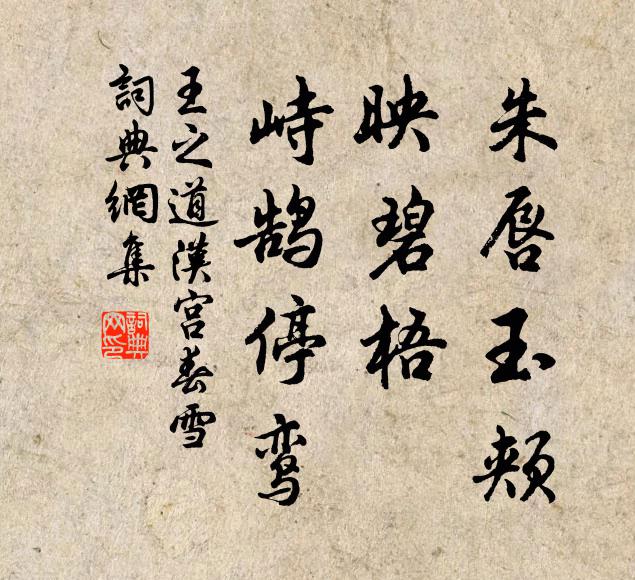 朱唇玉颊
映碧梧
峙鹄停鸾
王之道漢宫春雪
詞典網集
詞典
网印